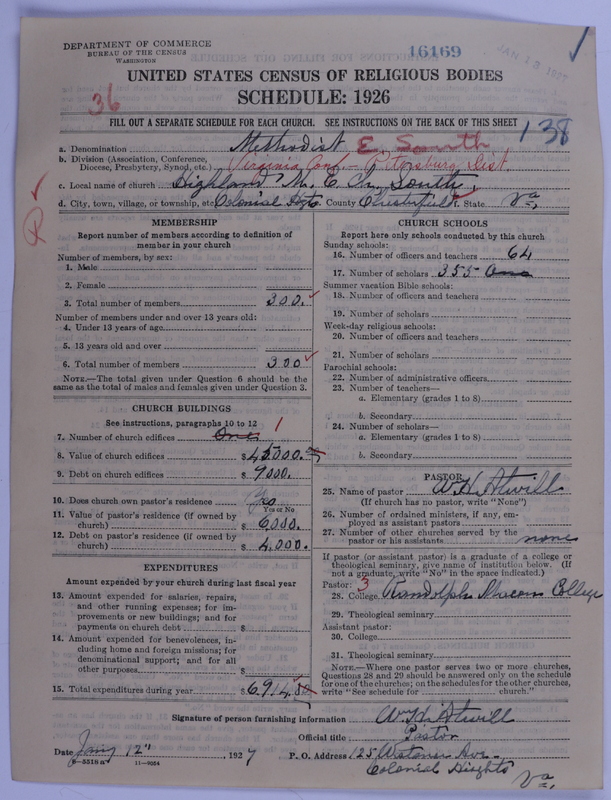 DEPARTMENT OF COMMERCE
BUREAU OF THE CENSUS
WASHINGTON
16169
JAN 13 1927
UNITED STATES CENSUS OF RELIGIOUS BODIES
SCHEDULE: 1926
36
FILL OUT A SEPARATE SCHEDULE FOR EACH CHURCH. SEE INSTRUCTIONS ON THE BACK OF THIS SHEET
138
a. Denomination Methodist E. South
b. Division (Association, Conference,
Diocese, Presbytery, Synod, etc.) Virginia Conf - Petersburg Dist
c. Local name of church Highland M. E. Ch. South,
d. City, town, village, or township, etc. Colonial Hgts County Chesterfield State Va,
MEMBERSHIP
Report number of members according to definition of
member in your church
Number of members, by sex:
1. Male
2. Female
3. Total number of members 300.
Number of members under and over 13 years old:
4. Under 13 years of age
5. 13 years old and over
6. Total number of members 300
NOTE.—The total given under Question 6 should be the
same as the total of males and females given under Question 3.
CHURCH BUILDINGS
See instructions, paragraphs 10 to 12
7. Number of church edifices One 1
8. Value of church edifices $45000.
9. Debt on church edifices $9000.
10. Does church own pastor's residence Yes
Yes or No
11. Value of pastor's residence (if owned by
church) $6000.
12. Debt on pastor's residence (if owned by
church) $4,000.
EXPENDITURES
Amount expended by your church during last fiscal year
13. Amount expended for salaries, repairs,
and other running expenses; for im-
provements or new buildings; and for
payments on church debt $
14. Amount expended for benevolences, in-
cluding home and foreign missions; for
denominational support; and for all
other purposes $
15. Total expenditures during year $6,914.
CHURCH SCHOOLS
Report here only schools conducted by this church
Sunday schools:
16. Number of officers and teachers 64
17. Number of scholars 355 One
Summer vacation Bible schools:
18. Number of officers and teachers
19. Number of scholars
Week-day religious schools:
20. Number of officers and teachers
21. Number of scholars
Parochial schools:
22. Number of administrative officers
23. Number of teachers—
a. Elementary (grades 1 to 8)
b. Secondary
24. Number of scholars—
a. Elementary (grades 1 to 8)
b. Secondary
PASTOR
25. Name of pastor W. H. Atwill
(If church has no pastor, write "None")
26. Number of ordained ministers, if any, em-
ployed as assistant pastors
27. Number of other churches served by the
pastor or his assistants none
If pastor (or assistant pastor) is a graduate of a college or
theological seminary, give name of institution below. (If
not a graduate, write "No" in the space indicated.)
Pastor: 3
28. College Randolph Macon College
29. Theological seminary
Assistant pastor:
30. College
31. Theological seminary
NOTE.—Where one pastor serves two or more churches,
Questions 28 and 29 should be answered only on the schedule
for one of the churches; on the schedules for the other churches,
write "See schedule for church."
Signature of person furnishing information W. H. Atwill
Official title Pastor
Date Jany 12", 1927 P. O. Address 125 Ave
8-5518a 11-9054
Colonial Heights Va,